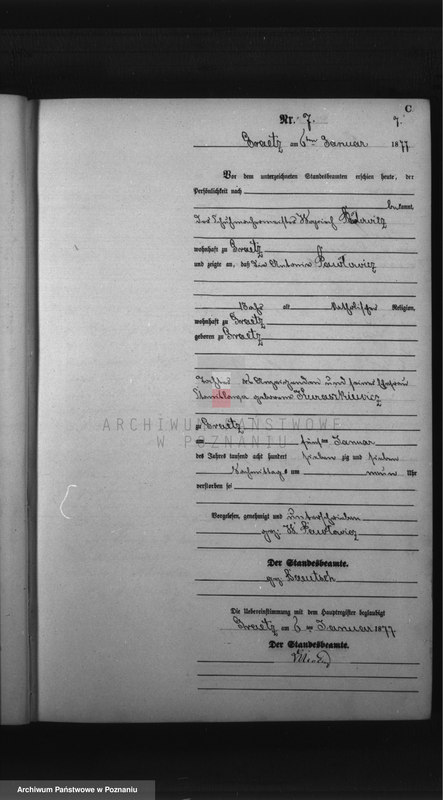 C
Nr. 7.
7.
Graetz am 6ten Januar 1877
Vor dem unterzeichneten Standesbeamten erschien heute, der
Persönlichkeit nach
bekannt,
der Schuhmachermeister
wohnhaft zu Graetz
und zeigte an, daß die Antonie Pawlowicz
alt katholischer Religion,
wohnhaft zu Graetz
geboren zu Graetz
Tochter des Anzeigenden und seiner Ehefrau
geborenen Kuraszkiewicz
ARCHIWUM PAŃSTWOWE
W POZNANIU
zu Graetz
am fünften Januar
des Jahres tausend acht hundert sieben zig und sieben
Nachmittags um neun Uhr
verstorben sei
Vorgelesen, genehmigt und unterschrieben
gez. W. Pawlowicz
Der Standesbeamte.
gez.
Die Uebereinstimmung mit dem Hauptregister beglaubigt
Graetz am 6ten Januar 1877
Der Standesbeamte.
Archiwum Państwowe w Poznaniu